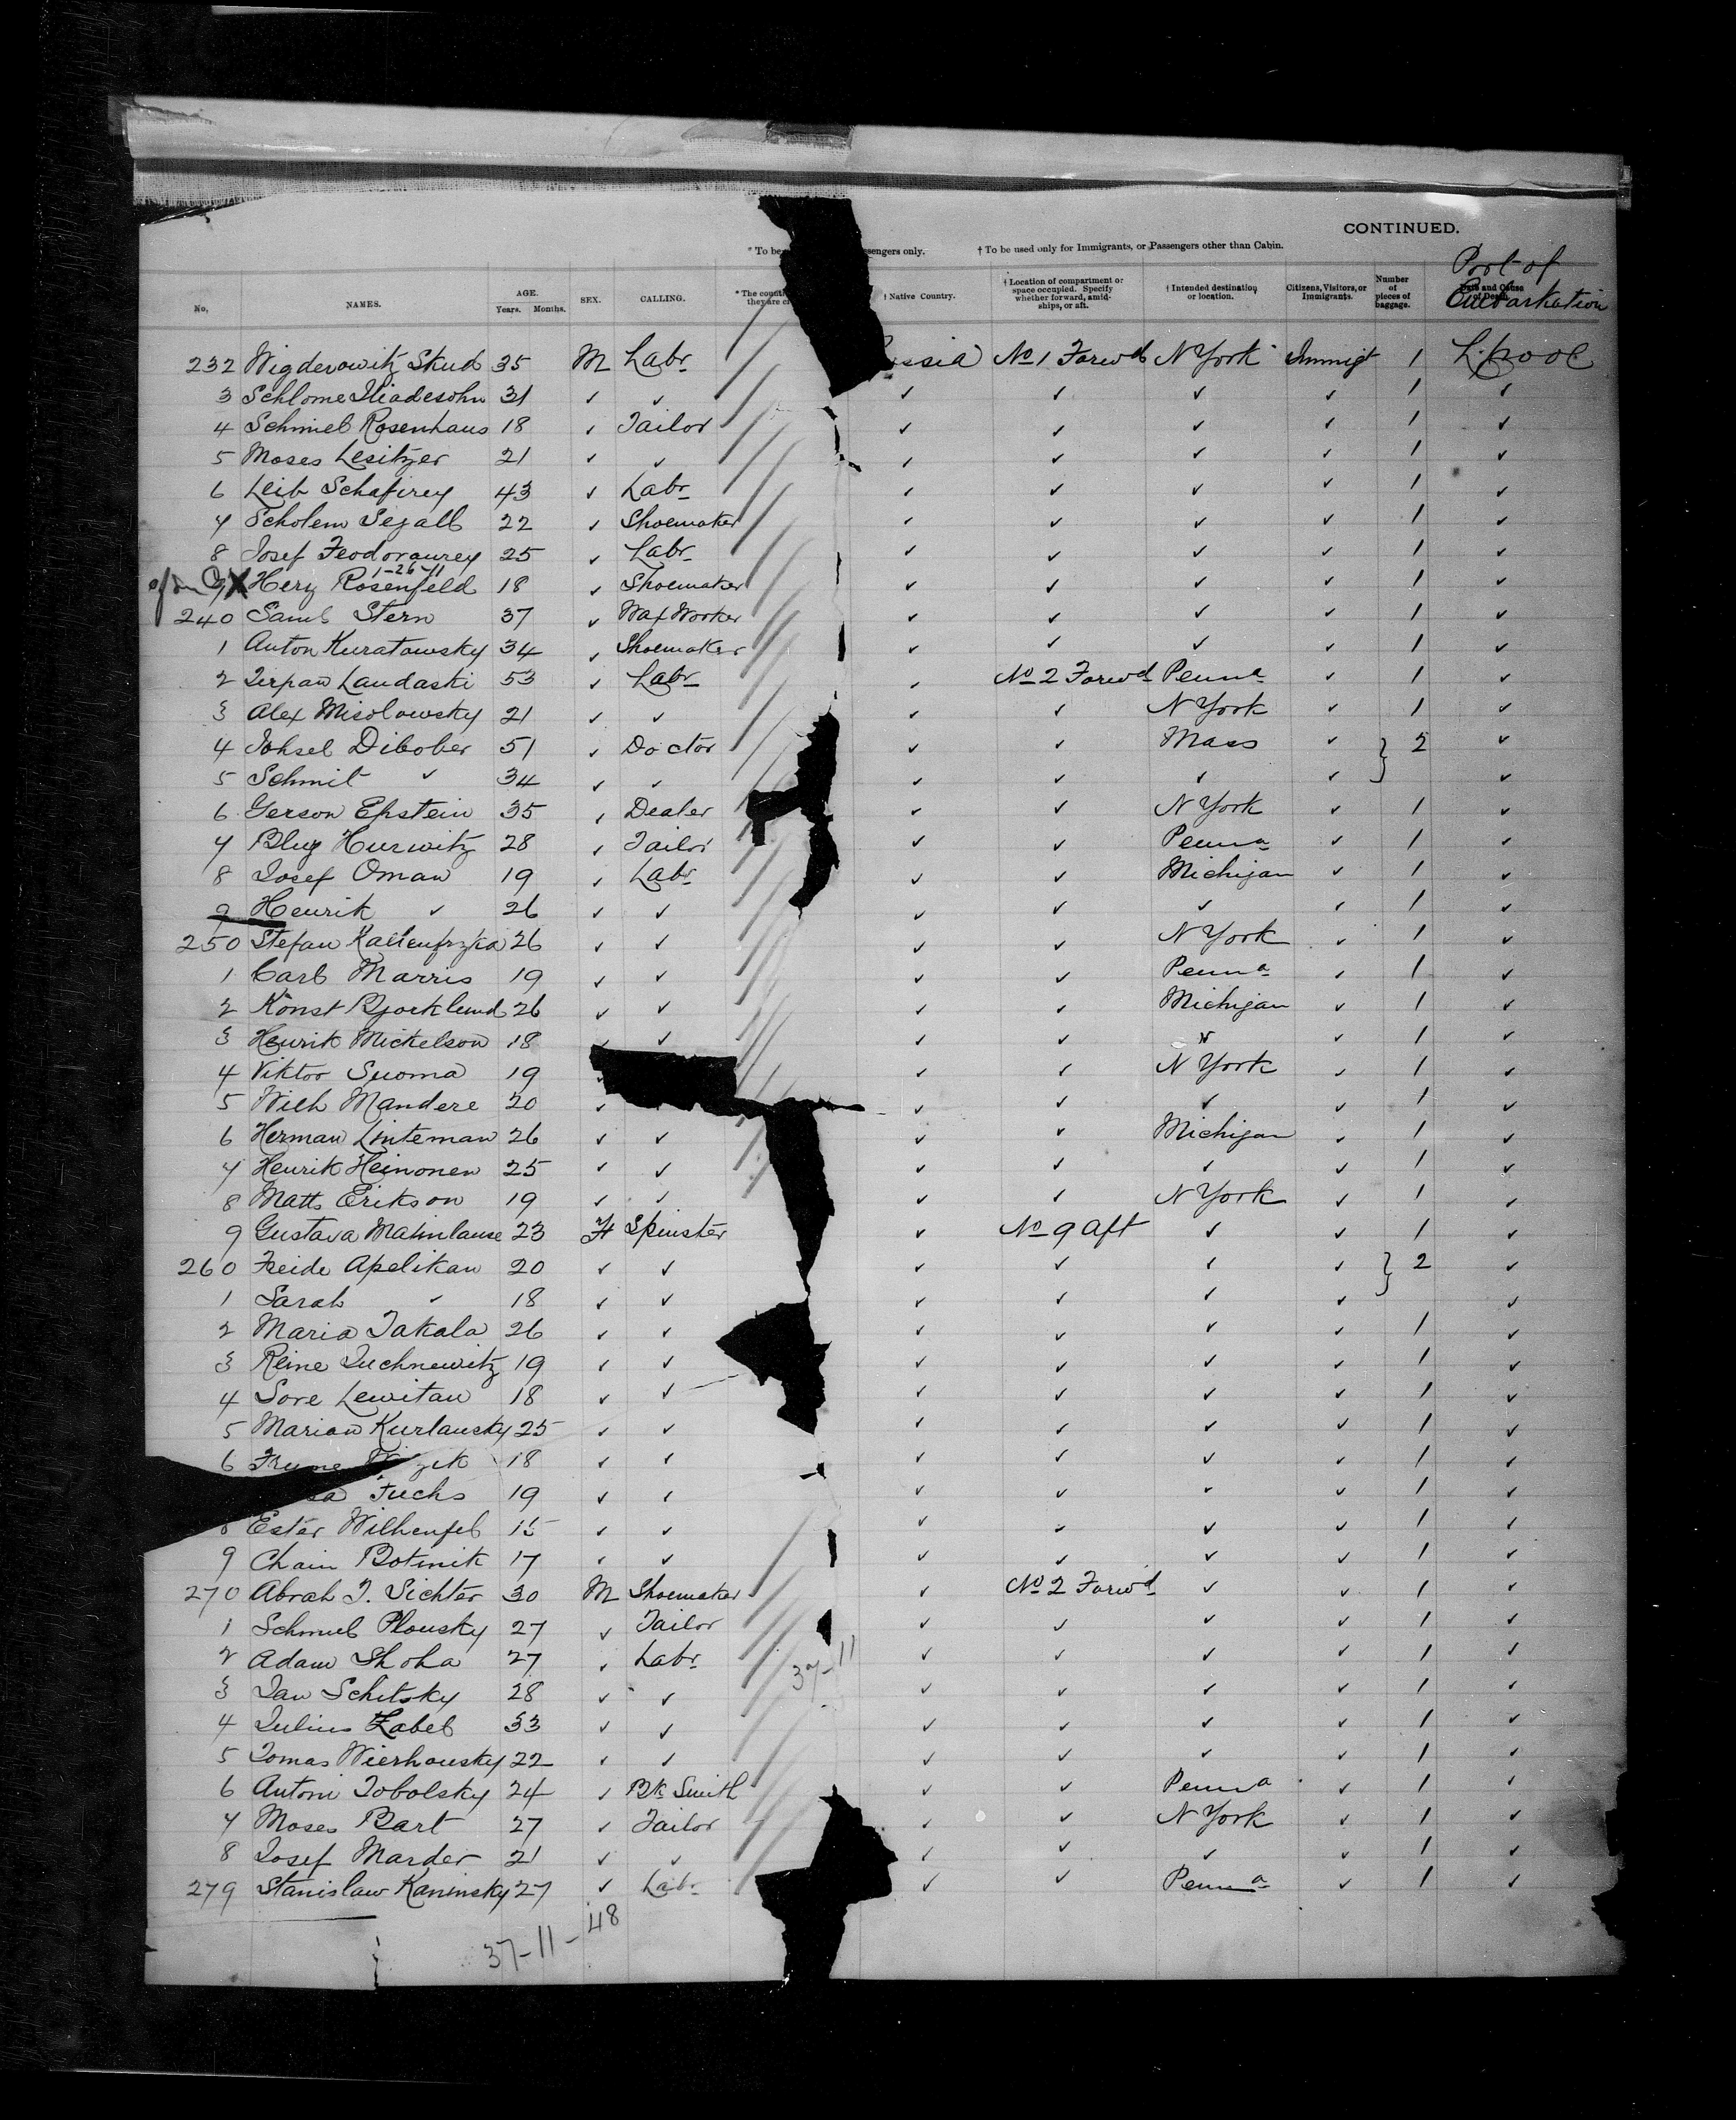 CONTINUED.
* To be sengers only. † To be used only for Immigrants, or Passengers other than Cabin.
Port of Embarkation
No. NAMES. AGE. Years. Months. SEX. CALLING. * The count they are ci † Native Country. † Location of compartment or space occupied. Specify whether forward, amid-ships, or aft. † Intended destination or location. Citizens, Visitors, or Immigrants. Number of pieces of baggage. Date and Cause of Death.
232 Wigderowitz Skud 35 M Labr ussia No 1 Forwd N York Immigt 1 L.pool
3 Schlome Iliadesohn 31 ✓ ✓ ✓ ✓ ✓ ✓ 1 ✓
4 Schmiel Rosenhaus 18 ✓ Tailor ✓ ✓ ✓ ✓ 1 ✓
5 Moses Lesitzer 21 ✓ ✓ ✓ ✓ ✓ ✓ 1 ✓
6 Leib Schafirey 43 ✓ Labr ✓ ✓ ✓ ✓ 1 ✓
7 Scholem Segall 22 ✓ Shoemaker ✓ ✓ ✓ ✓ 1 ✓
8 Josef 25 ✓ Labr ✓ ✓ ✓ ✓ 1 ✓
1-26-11
9 X Herz Rosenfeld 18 ✓ Shoemaker ✓ ✓ ✓ ✓ 1 ✓
240 Saml Stern 37 ✓ Wax Worker ✓ ✓ ✓ ✓ 1 ✓
1 Anton Kuratowsky 34 ✓ Shoemaker ✓ ✓ ✓ ✓ 1 ✓
2 Landaski 53 ✓ Labr ✓ No 2 Forwd Penna ✓ 1 ✓
3 Alex Misolowsky 21 ✓ ✓ ✓ ✓ N York ✓ 1 ✓
4 Johsel Dibober 51 ✓ Doctor ✓ ✓ Mass ✓ } 2 ✓
5 Schmil ✓ 34 ✓ ✓ ✓ ✓ ✓ ✓ ✓
6 Gerson Epstein 35 ✓ Dealer ✓ ✓ N York ✓ 1 ✓
7 Hurwitz 28 ✓ Tailor ✓ ✓ Penna ✓ 1 ✓
8 Josef Oman 19 ✓ Labr ✓ ✓ Michigan ✓ 1 ✓
9 Henrik ✓ 26 ✓ ✓ ✓ ✓ ✓ ✓ 1 ✓
250 Stefan 26 ✓ ✓ ✓ ✓ N York ✓ 1 ✓
1 Carl Marris 19 ✓ ✓ ✓ ✓ Penna ✓ 1 ✓
2 Konst Bjorklund 26 ✓ ✓ ✓ ✓ Michigan ✓ 1 ✓
3 Henrik Mickelson 18 ✓ ✓ ✓ ✓ ✓ ✓ 1 ✓
4 Viktor Suoma 19 ✓ ✓ ✓ N York ✓ 1 ✓
5 Wilh Mandere 20 ✓ ✓ ✓ ✓ ✓ 1 ✓
6 Herman Linteman 26 ✓ ✓ ✓ ✓ Michigan ✓ 1 ✓
7 Henrik Heinonen 25 ✓ ✓ ✓ ✓ ✓ ✓ 1 ✓
8 Matts Erikson 19 ✓ ✓ ✓ ✓ N York ✓ 1 ✓
9 Gustava 23 F Spinster ✓ No 9 Aft ✓ ✓ 1 ✓
260 Freide Apelikan 20 ✓ ✓ ✓ ✓ ✓ ✓ } 2 ✓
1 Sarah ✓ 18 ✓ ✓ ✓ ✓ ✓ ✓ ✓
2 Maria Takala 26 ✓ ✓ ✓ ✓ ✓ ✓ 1 ✓
3 Reine Tuchnewitz 19 ✓ ✓ ✓ ✓ ✓ ✓ 1 ✓
4 Sore Lewitan 18 ✓ ✓ ✓ ✓ ✓ ✓ 1 ✓
5 Marian Kurlansky 25 ✓ ✓ ✓ ✓ ✓ ✓ 1 ✓
6 Frume 18 ✓ ✓ ✓ ✓ ✓ ✓ 1 ✓
Fuchs 19 ✓ ✓ ✓ ✓ ✓ ✓ 1 ✓
8 Ester Wilhenfel 15 ✓ ✓ ✓ ✓ ✓ ✓ 1 ✓
9 Chain Botinik 17 ✓ ✓ ✓ ✓ ✓ ✓ 1 ✓
270 Abrah J. Sichter 30 M Shoemaker ✓ No 2 Forwd ✓ ✓ 1 ✓
1 Schmul Plousky 27 ✓ Tailor ✓ ✓ ✓ ✓ 1 ✓
2 Adam Shoha 27 ✓ Labr ✓ ✓ ✓ ✓ 1 ✓
37-11
3 Jan Schitsky 28 ✓ ✓ ✓ ✓ ✓ ✓ 1 ✓
4 Julius Zabel 33 ✓ ✓ ✓ ✓ ✓ ✓ 1 ✓
5 Tomas Wierhousky 22 ✓ ✓ ✓ ✓ ✓ ✓ 1 ✓
6 Antoni Tobolsky 24 ✓ Bk Smith ✓ ✓ Penna ✓ 1 ✓
7 Moses Bart 27 ✓ Tailor ✓ ✓ N York ✓ 1 ✓
8 Josef Marder 21 ✓ ✓ ✓ ✓ ✓ ✓ 1 ✓
279 Stanislaw Kaninsky 27 ✓ Labr ✓ ✓ Penna ✓ 1 ✓
37-11-48